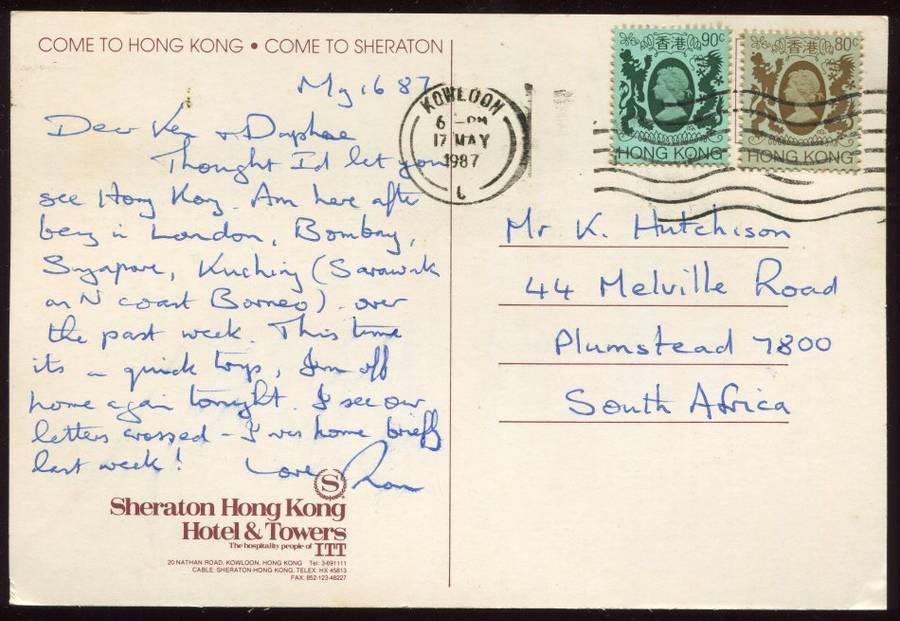 COME TO HONG KONG • COME TO SHERATON
My 16 87
Dear Ken + Daphne
Thought I'd let you
see Hong Kong. Am here after
being in London, Bombay,
Singapore, Kuching (Sarawak
on N coast Borneo) over
the past week. This time
its a quick trip, I'm off
home again tonight. I see our
letters crossed - I was home briefly
last week! Love Ron
S
Sheraton Hong Kong
Hotel & Towers
The hospitality people of ITT
20 NATHAN ROAD, KOWLOON, HONG KONG Tel: 3-691111
CABLE: SHERATON HONG KONG, TELEX: HX 45813
FAX: 852-123-48227
KOWLOON
6 - PM
17 MAY
1987
香港 90c
HONG KONG
香港 80c
HONG KONG
Mr K. Hutchison
44 Melville Road
Plumstead 7800
South Africa